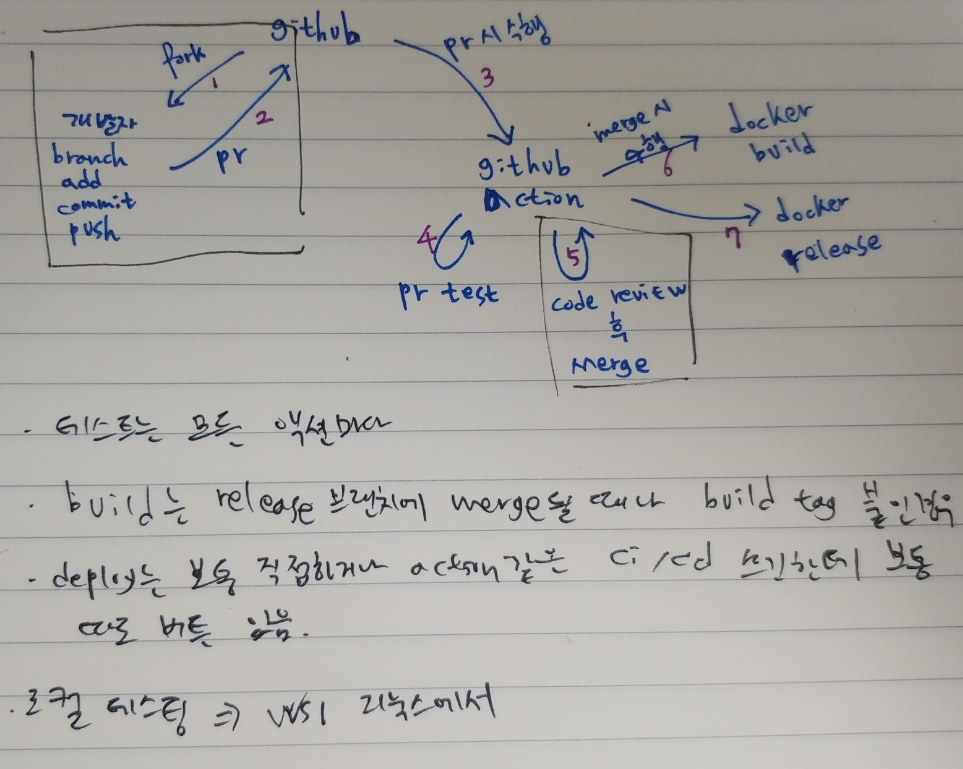 github
fork
1
개발자
branch
add
commit
push
2
pr
pr시 수행
3
github
action
4
pr test
5
code review
후
merge
merge시
수행
6
docker
build
7
docker
release
· 테스트는 모든 액션마다
· build는 release 브랜치에 merge될 때나 build tag 붙인경우
· deploy는 보통 직접하거나 action같은 ci/cd 쓰긴한데 보통
따로 버튼 있음.
· 로컬 테스팅 ⇒ WSl 리눅스에서